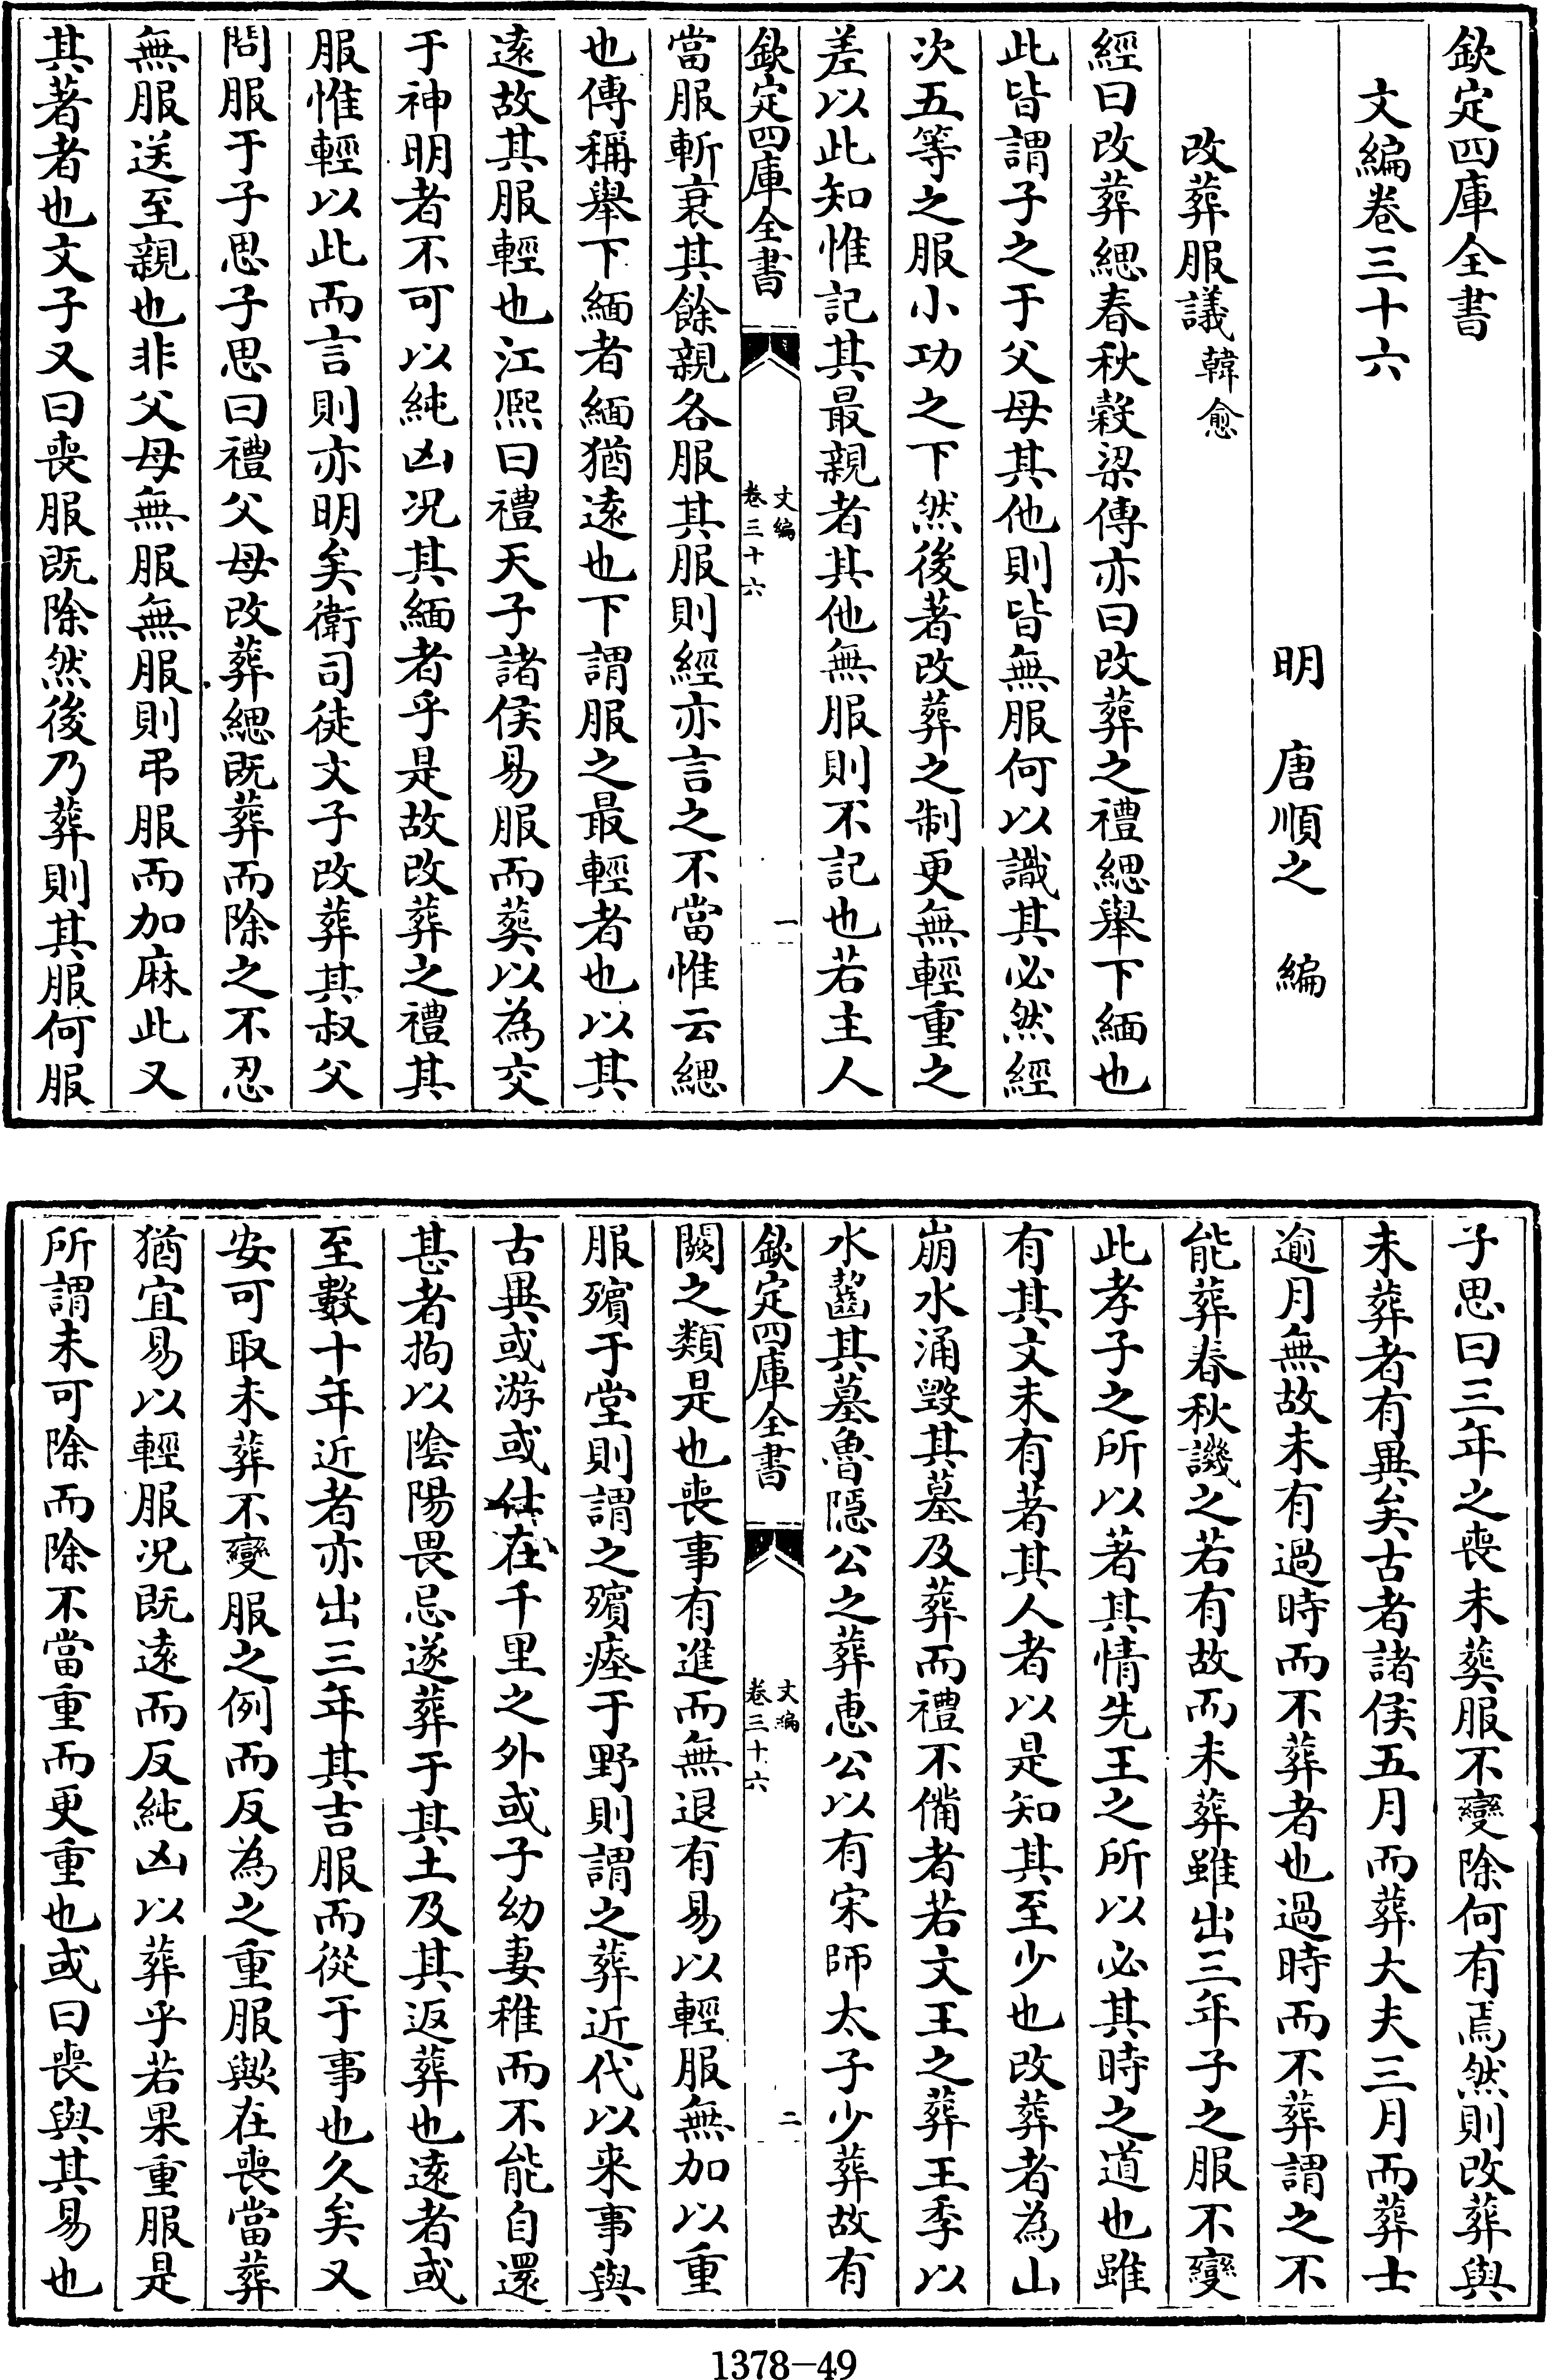 欽定四庫全書
文編卷三十六
明 唐順之 編
改葬服議 韓愈
經曰改葬緦春秋穀梁傳亦曰改葬之禮緦舉下緬也
此皆謂子之于父母其他則皆無服何以識其必然經
次五等之服小功之下然後著改葬之制更無輕重之
差以此知惟記其最親者其他無服則不記也若主人
欽定四庫全書 文編卷三十六 一
當服斬衰其餘親各服其服則經亦言之不當惟云緦
也傳稱舉下緬者緬猶遠也下謂服之最輕者也以其
遠故其服輕也江熈曰禮天子諸侯易服而葬以為交
于神明者不可以純凶况其緬者乎是故改葬之禮其
服惟輕以此而言則亦明矣衛司徒文子改葬其叔父
問服于子思子思曰禮父母改葬緦既葬而除之不忍
無服送至親也非父母無服無服則弔服而加麻此又
其著者也文子又曰喪服既除然後乃葬則其服何服
子思曰三年之喪未葬服不變除何有焉然則改葬與
未葬者有異矣古者諸侯五月而葬大夫三月而葬士
逾月無故未有過時而不葬者也過時而不葬謂之不
能葬春秋譏之若有故而未葬雖出三年子之服不變
此孝子之所以著其情先王之所以必其時之道也雖
有其文未有著其人者以是知其至少也改葬者為山
崩水涌毀其墓及葬而禮不備者若文王之葬王季以
水齧其墓魯隱公之葬惠公以有宋師太子少葬故有
欽定四庫全書 文編卷三十六 二
闕之類是也喪事有進而無退有易以輕服無加以重
服殯于堂則謂之殯瘞于野則謂之葬近代以来事與
古異或游或仕在千里之外或子幼妻稚而不能自還
甚者拘以陰陽畏忌遂葬于其土及其返葬也遠者或
至數十年近者亦出三年其吉服而從于事也久矣又
安可取未葬不變服之例而反為之重服歟在喪當葬
猶宜易以輕服况既遠而反純凶以葬乎若果重服是
所謂未可除而除不當重而更重也或曰喪與其易也
1378-49